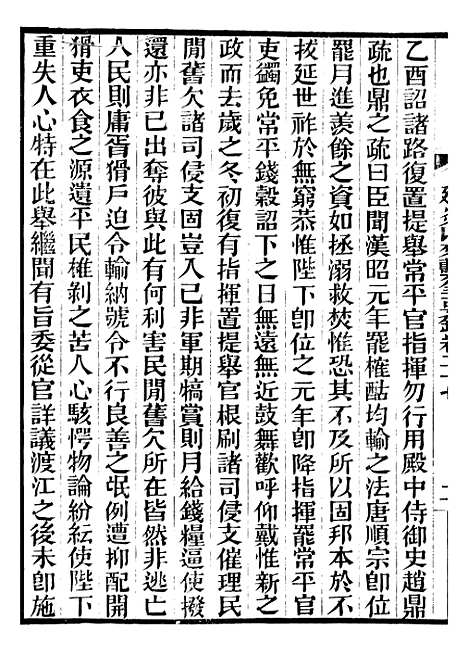 乙酉詔諸路復置提舉常平官指揮勿行用殿中侍御史趙鼎
疏也鼎之疏曰臣聞漢昭元年罷榷酤均輸之法唐順宗卽位
罷月進羨餘之資如拯溺救焚惟恐其不及所以固邦本於不
拔延世祚於無窮恭惟陛下卽位之元年卽降指揮罷常平官
吏蠲免常平錢穀詔下之日無遠無近鼓舞歡呼仰戴惟新之
政而去歲之冬初復有指揮置提舉官根刷諸司侵支催理民
閒舊欠諸司侵支固豈入已非軍期犒賞則月給錢糧逼使撥
還亦非已出奪彼與此有何利害民閒舊欠所在皆然非逃亡
人民則庸胥猾戶迫令輸納號令不行良善之氓例遭抑配開
猾吏衣食之源遺平民椎剝之苦人心駭愕物論紛紜使陛下
重失人心特在此舉繼聞有旨委從官詳議渡江之後未卽施